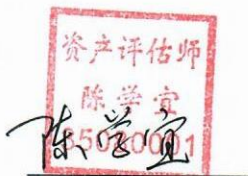 资产评估师
陈学宜
陈学宜